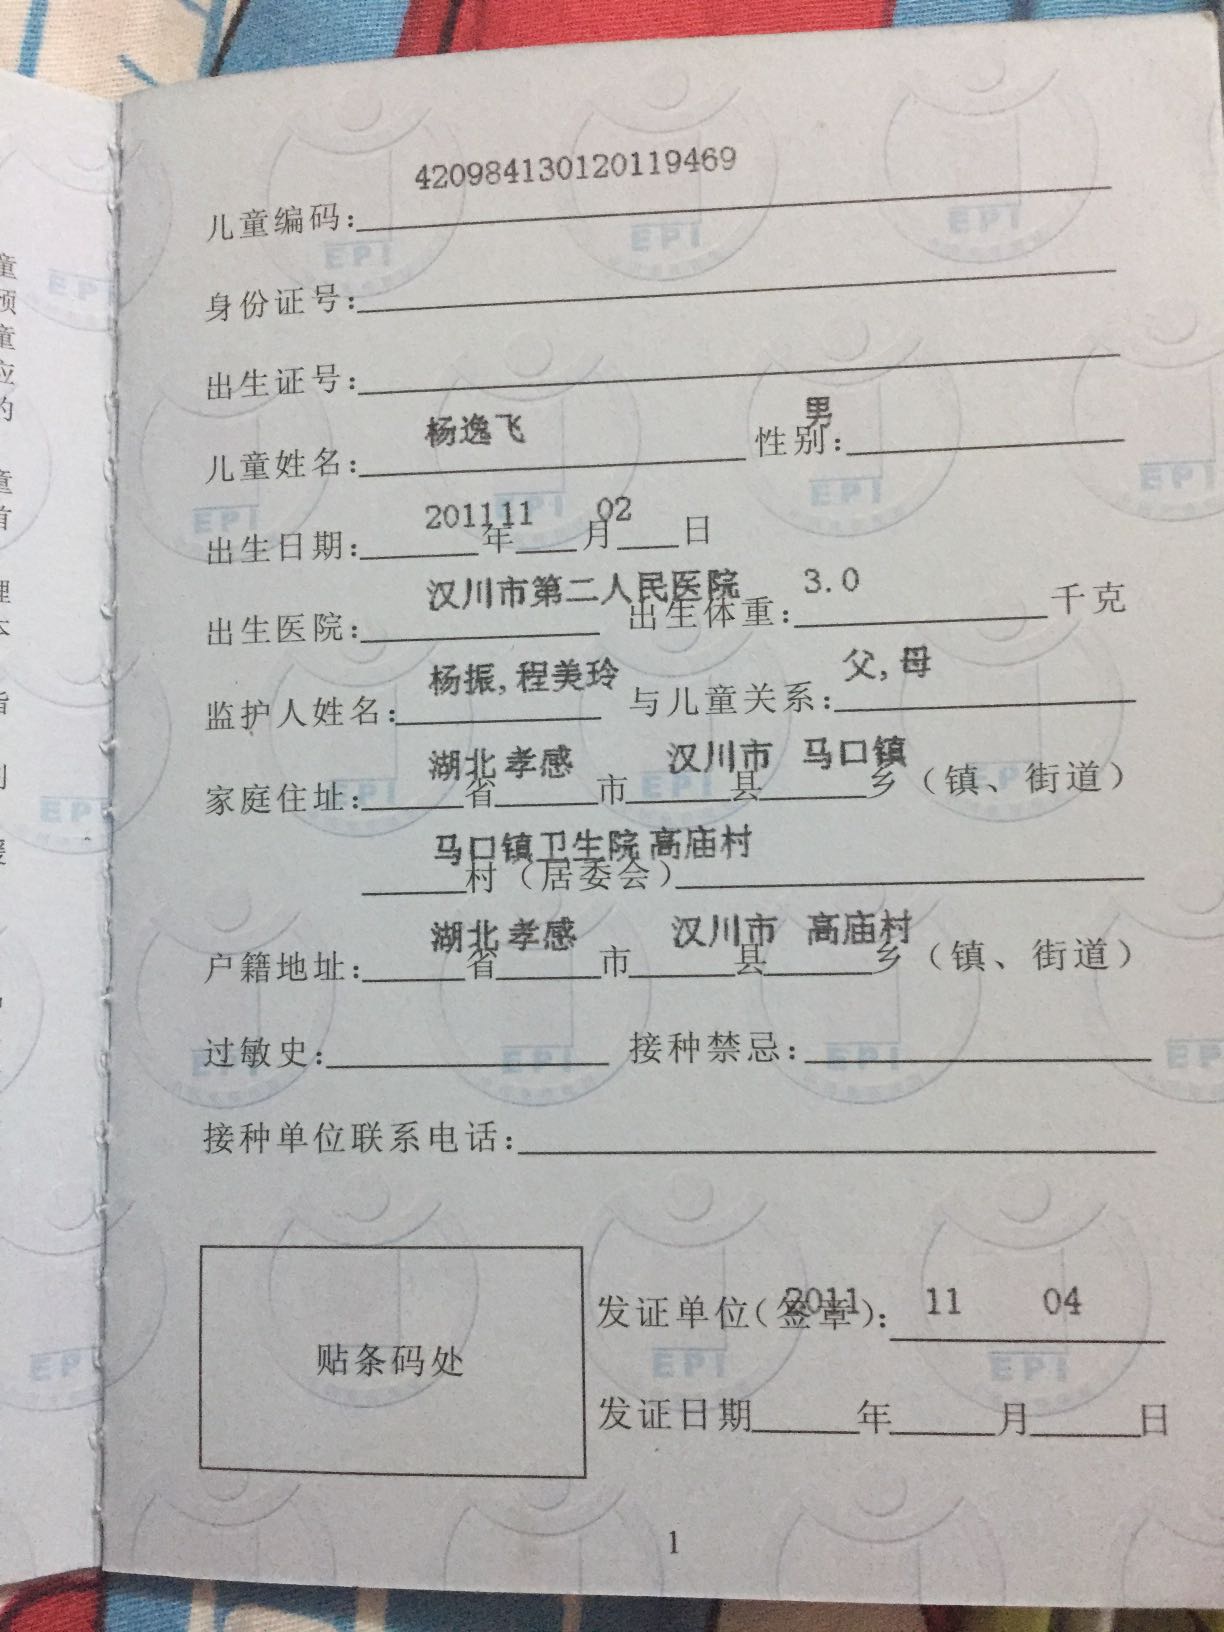 420984130120119469
儿童编码：
身份证号：
出生证号：
儿童姓名：杨逸飞 性别：男
出生日期：2011年11月02日
出生医院：汉川市第二人民医院 出生体重：3.0千克
监护人姓名：杨振,程美玲 与儿童关系：父,母
家庭住址：湖北省孝感市汉川市县马口镇乡（镇、街道）
马口镇卫生院村（居委会）高庙村
户籍地址：湖北省孝感市汉川市县高庙村乡（镇、街道）
过敏史： 接种禁忌：
接种单位联系电话：
贴条码处
发证单位（签章）：2011 11 04
发证日期 年 月 日
1
EPI